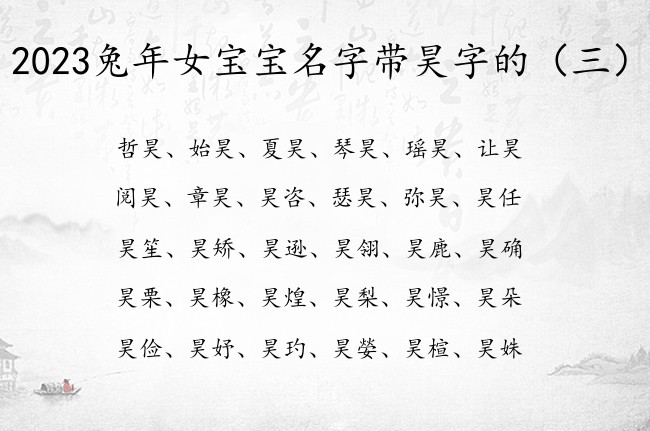 2023兔年女宝宝名字带昊字的（三）
哲昊、始昊、夏昊、琴昊、瑶昊、让昊
阅昊、章昊、昊咨、瑟昊、弥昊、昊任
昊笙、昊矫、昊逊、昊翎、昊鹿、昊确
昊栗、昊橡、昊煌、昊梨、昊憬、昊朵
昊俭、昊妤、昊玓、昊嫈、昊楦、昊姝